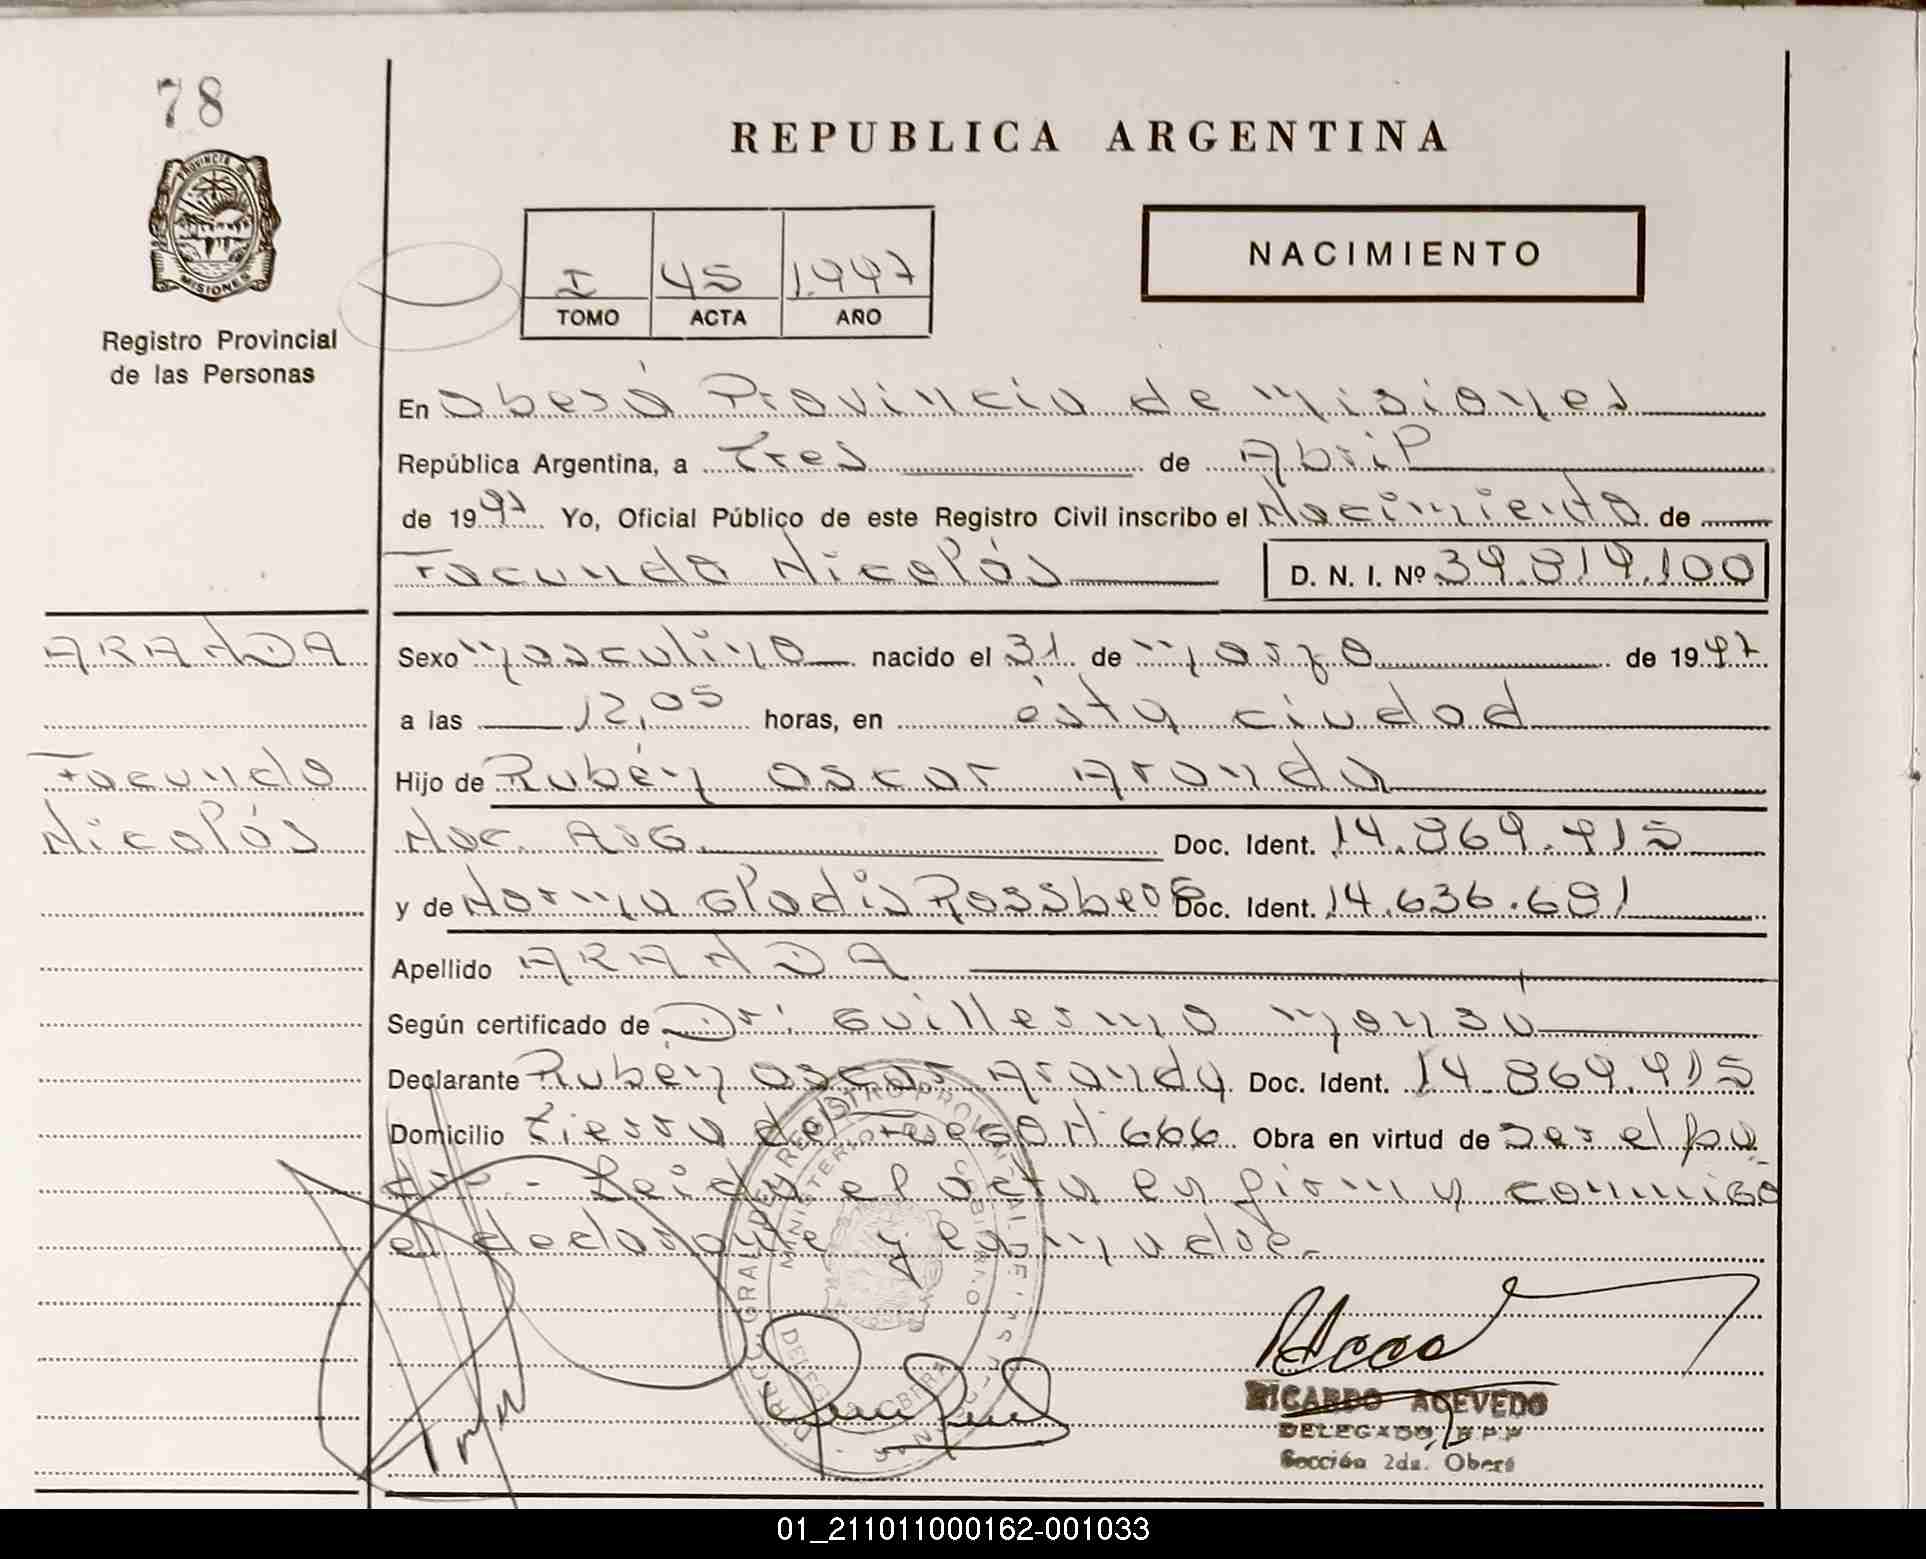 78
REPUBLICA ARGENTINA
PROVINCIA DE
MISIONES
Registro Provincial
de las Personas
I 45 1.997
TOMO ACTA AÑO
NACIMIENTO
En Oberá Provincia de Misiones
República Argentina, a Tres de Abril
de 1997 Yo, Oficial Público de este Registro Civil inscribo el Nacimiento de
Facundo Nicolás D. N. I. Nº 39.819.100
ARANDA
Facundo
Nicolás
Sexo Masculino nacido el 31 de Marzo de 1997
a las 12,05 horas, en ésta ciudad
Hijo de Rubén Oscar Aranda
Nac. Arg. Doc. Ident. 14.869.915
y de Norma Gladis Rossberg Doc. Ident. 14.636.681
Apellido ARANDA
Según certificado de Dr. Guillermo
Declarante Rubén Oscar Aranda Doc. Ident. 14.869.915
Domicilio Tierra del Fuego Nº 666 Obra en virtud de ser el pa
dre.- Leida el acta firma conmigo
el declarante y
RICARDO ACEVEDO
DELEGADO R.P.P
Sección 2da. Oberá
01_211011000162-001033